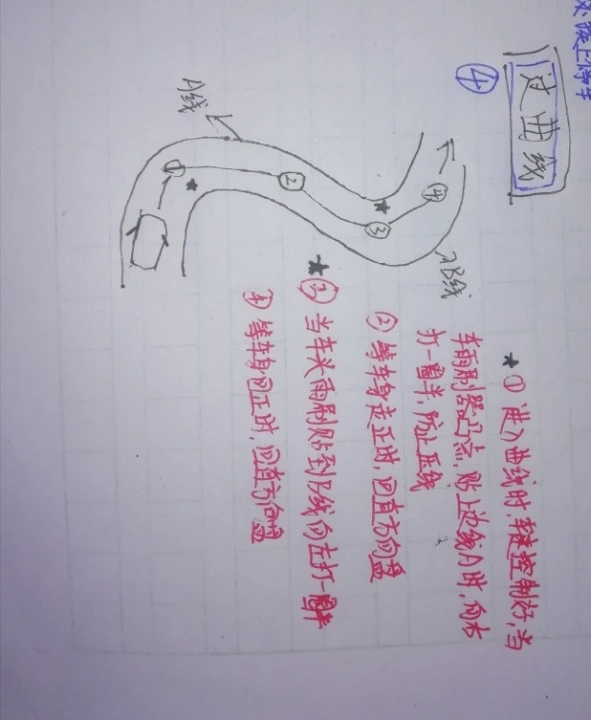 ④ 过曲线
A线
①
②
③
④
B线
★① 进入曲线时，车速控制好，当
车雨刷器凸点，贴上边线A时，向右
打一圈半，防止压线
② 等车身走正时，回直方向盘
★③ 当车头雨刷贴到B线向左打一圈半
④ 等车身回正时，回直方向盘